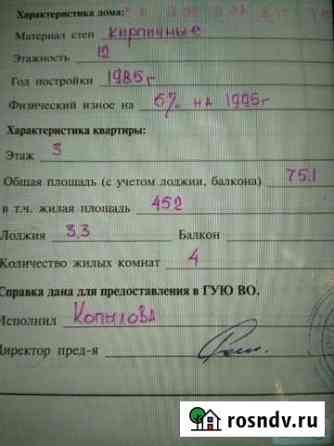 Характеристика дома:
Материал стен кирпичные
Этажность 12
Год постройки 1985г
Физический износ на 6% на 1995г
Характеристика квартиры:
Этаж 3
Общая площадь (с учетом лоджии, балкона) 75.1
в т.ч. жилая площадь 45.2
Лоджия 3,3 Балкон
Количество жилых комнат 4
Справка дана для предоставления в ГУЮ ВО.
Исполнил Копылова
Директор пред-я
rosndv.ru